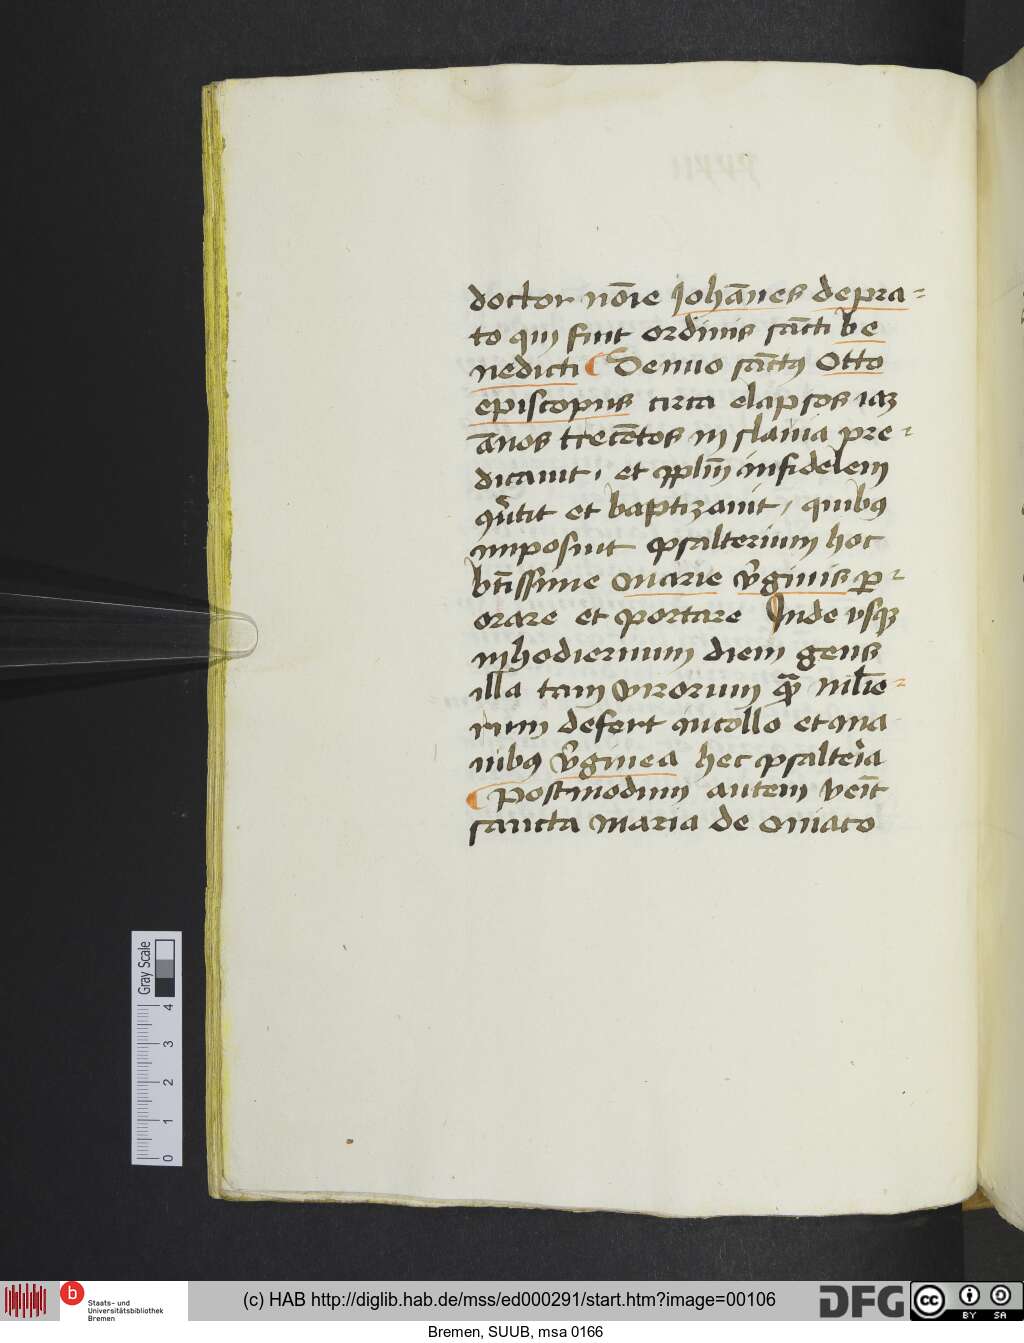 doctor nōie Johānes depra=
to qui fuit ordinis sācti be
nedicti Denuo sāctꝯ Otto
episcopus circa elapsos iaꝫ
ānos trecētos in slauia pre=
dicauit, et pplm̄ infidelem
ꝯu̓tit et baptizauit, quibꝯ
imposuit psalterium hoc
bt̄issime Marie v̓ginis ꝑ=
orare et portare Inde vsqꝫ
inhodiernum diem gens
illa tam virorum qᷓ miliē=
rum defert in collo et ma
nibꝯ v̓ginea hec psalteria
Postmodum autem venīt
sancta maria de Oniaco
Gray Scale
0 1 2 3 4
b
Staats- und
Universitätsbibliothek
Bremen
(c) HAB http://diglib.hab.de/mss/ed000291/start.htm?image=00106
DFG
cc BY SA
Bremen, SUUB, msa 0166